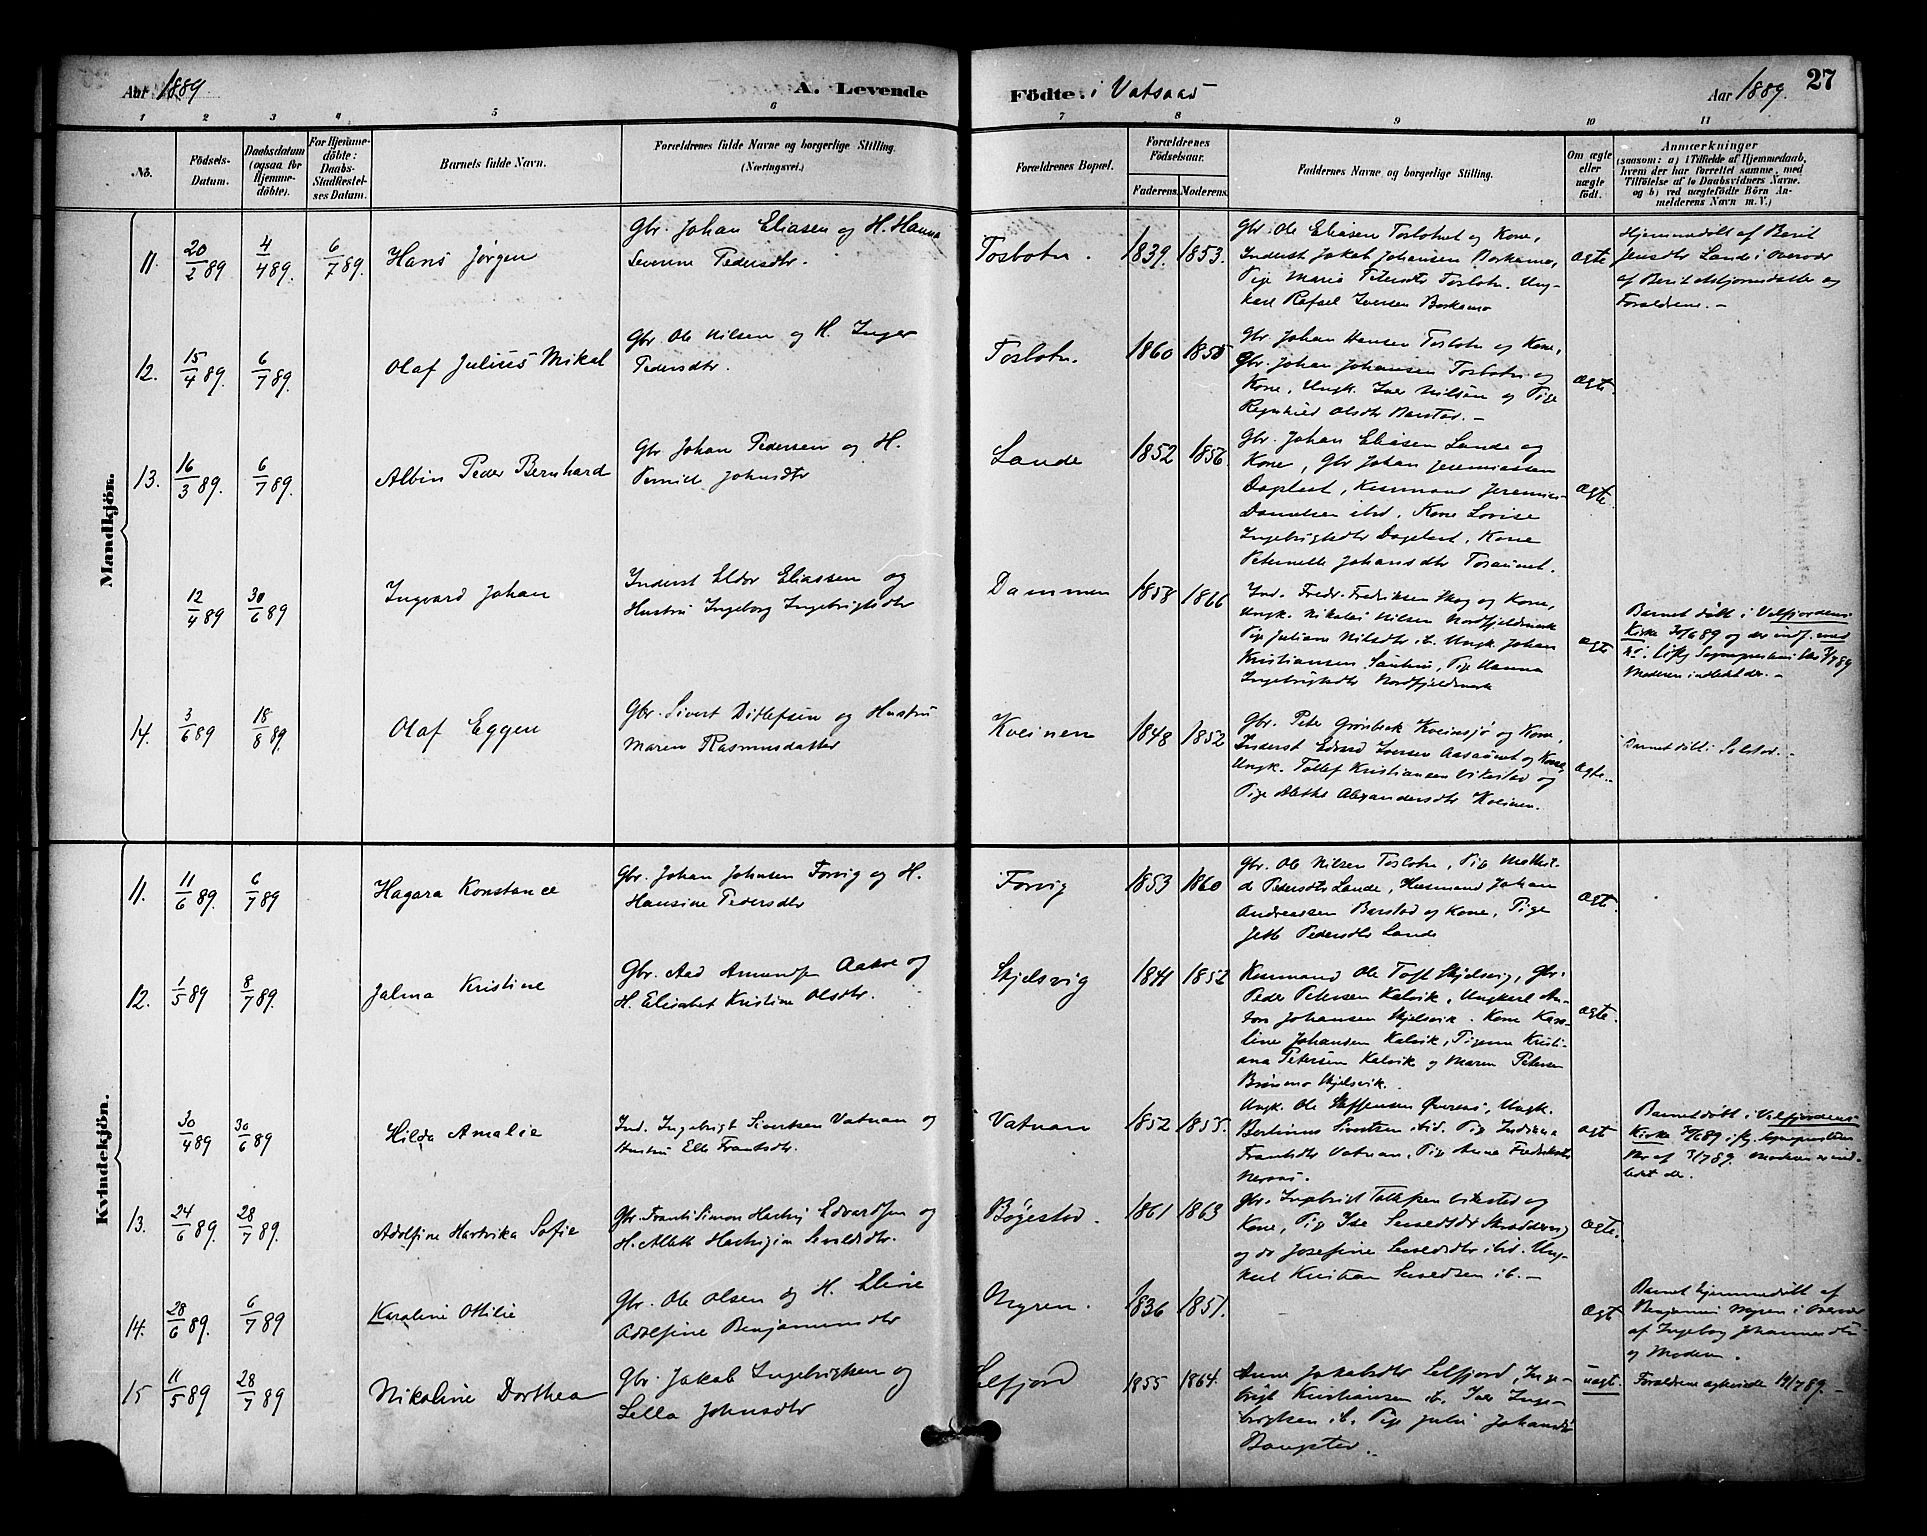 Aar 1889
A. Levende
Födte i Vatsaas
Aar 1889.
27
1 2 3 4 5 6 7 8 9 10 11
No.
Födsels-
Datum.
Daabsdatum
(ogsaa for
Hjemme-
döbte).
For Hjemme-
döbte:
Daabs-
Stadfæstel-
ses Datum.
Barnets fulde Navn.
Forældrenes fulde Navne og borgerlige Stilling.
(Næringsvei.)
Forældrenes Bopæl.
Forældrenes
Födselsaar.
Faderens. Moderens.
Faddernes Navne og borgerlige Stilling.
Om ægte
eller
uægte
födt.
Anmærkninger
(saasom: a) i Tilfælde af Hjemmedaab,
hvem der har forrettet samme, med
Tilföielse af to Daabsvidners Navne.
og b) ved uægtefödte Börn An-
melderens Navn m. V.)
Mandkjön.
11. 20/2 89 4/4 89. 6/7 89. Hans Jørgen
Gbr. Johan Eliasen og H. Hanna
Severine Pedersdtr.
Tosbotn. 1839. 1853.
Gbr. Ole Eliasen Tosbotnet og Kone,
Inderst Jakob Johansen Borkamo,
Pige Maria Petersdtr Tosbotn. Ung-
karl Rafael Iversen Borkamo
ægte
Hjemmedøbt af Berit
Jensdtr Lande i Overvær
af Berit Asbjørnsdatter og
Forældrene. -
12. 15/4 89. 6/7 89. Olaf Julius Mikal
Gbr. Ole Nilsen og H. Inger
Pedersdtr.
Tosbotn. 1860 1855
Gbr. Johan Hansen Tosbotn og Kone,
Gbr. Johan Johansen Tosbotn og
Kone, Ungk. Iver Nilsen og Pige
Ragnhild Olsdtr Barstad. -
ægte.
13. 16/3 89. 6/7 89. Albin Peder Bernhard
Gbr Johan Pedersen og H.
Pernille Johnsdtr
Lande 1852 1856.
Gbr. Johan Eliasen Lande og
Kone, Gbr Johan Jeremiassen
Dagslaat, Husmand Jeremias
Danielsen ibid, Kone Lovise
Ingebrigtsdtr Dagslaat, Kone
Peternelle Johansdtr Tosaunet.
ægte.
12/4 89 30/6 89 Ingvard Johan
Inderst Eldor Eliassen og
Hustru Ingeborg Ingebrigtsdtr
Dammen 1858 1866
Ind. Fredr. Fredriksen Skog og Kone,
Ungk. Nikolai Nilsen Nordfjeldmark
Pige Juliane Nilsdtr ib. Ungk. Johan
Kristiansen, Pige Hanna
Ingebrigtsdtr Nordfjeldmark
ægte
Barnet døbt i Velfjordens
Kirke 30/6 89 og er indf. med
Moderen indledet der. -
14. 3/6 89 18/8 89. Olaf Eggen
Gbr. Sivert Ditlefsen og Hustru
Maren Rasmusdatter
Kveinen 1848 1852
Gbr. Peter Grønbek Kveinsjø og Kone,
Inderst Edvard Iversen Aasaunet og Kone,
Ungk. Tollef Kristiansen Vikestad og
Pige Alethe Alexandersdtr Kveinen.
ægte.
Barnet døbt i Solstad. -
Kvindekjön.
11. 11/6 89. 6/7 89 Hagara Konstance
Gbr. Johan Johnsen Forvig og H.
Hansine Pedersdtr
Forvig 1853 1860
Gbr. Ole Nilsen Tosbotn, Pige Mathil-
de Pedersdtr Lande, Husmand Johan
Andreassen Barstad og Kone, Pige
Jette Pedersdtr Lande
ægte.
12. 1/5 89 8/7 89. Jalma Kristine
Gbr. Aad Amunds. Aakre og
H. Elisabet Kristine Olsdtr.
Skjelsvig 1841 1852
Husmand Ole Toft Skjelsvig, Gbr.
Peder Petersen Kalvik, Ungkarl An-
ton Johansen Skjelsvik. Kone Karo-
line Johansen Kalvik, Pigerne Kristi-
ana Petersen Kalvik og Maren Petersen
Brønmo Skjelsvik.
ægte.
30/4 89 30/6 89 Hilda Amalie
Ind. Ingebrigt Sivertsen Vatnan og
Hustru Elle Frantsdtr.
Vatnan 1852 1855.
Ungk. Ole Steffensen Øverås, Ungk.
Berlinus Sivertsen ibid. Pige Indiana
Frantsdtr Vatnan, Pige Anna Fredriksdtr
ægt
Barnet døbt i Velfjordens
Kirke 30/6 89 ifg. Sognepræsten
Br. af 3/7 89. Moderen er ind-
ledet der.
13. 24/6 89. 28/7 89. Adolfine Hartvika Sofie
Gbr. Frants Simon Hartvig Edvardsen og
H. Alette Hartvigine Sivaldsdtr.
Bøgestad. 1861 1863
Gbr. Ingebrigt Tollefsen Vikestad og
og do Josefine ibid. Ung-
karl Kristian ib. -
ægte.
14. 28/6 89. 6/7 89 Karoline Ottilie
Gbr. Ole Olsen og H. Elivie
Adolfine Benjaminsdtr
Nyren. 1836 1851.
ægt
Barnet hjemmedøbt af
Benjamin Nyren i Overvær
af Ingeborg Johannesdtr
og Moderen.
15 11/5 89 28/7 89 Nikoline Dorthea
Gbr. Jakob Ingebrigtsen og
Sella Johnsdtr
Lelfjord 1855 1864.
Anne Jakobsdtr Lelfjord, Inge-
brigt Kristiansen ib. Iver Inge-
brigtsen ib. Pige Julie Johansdtr
uægt.
Forældrene 14/7 89. -